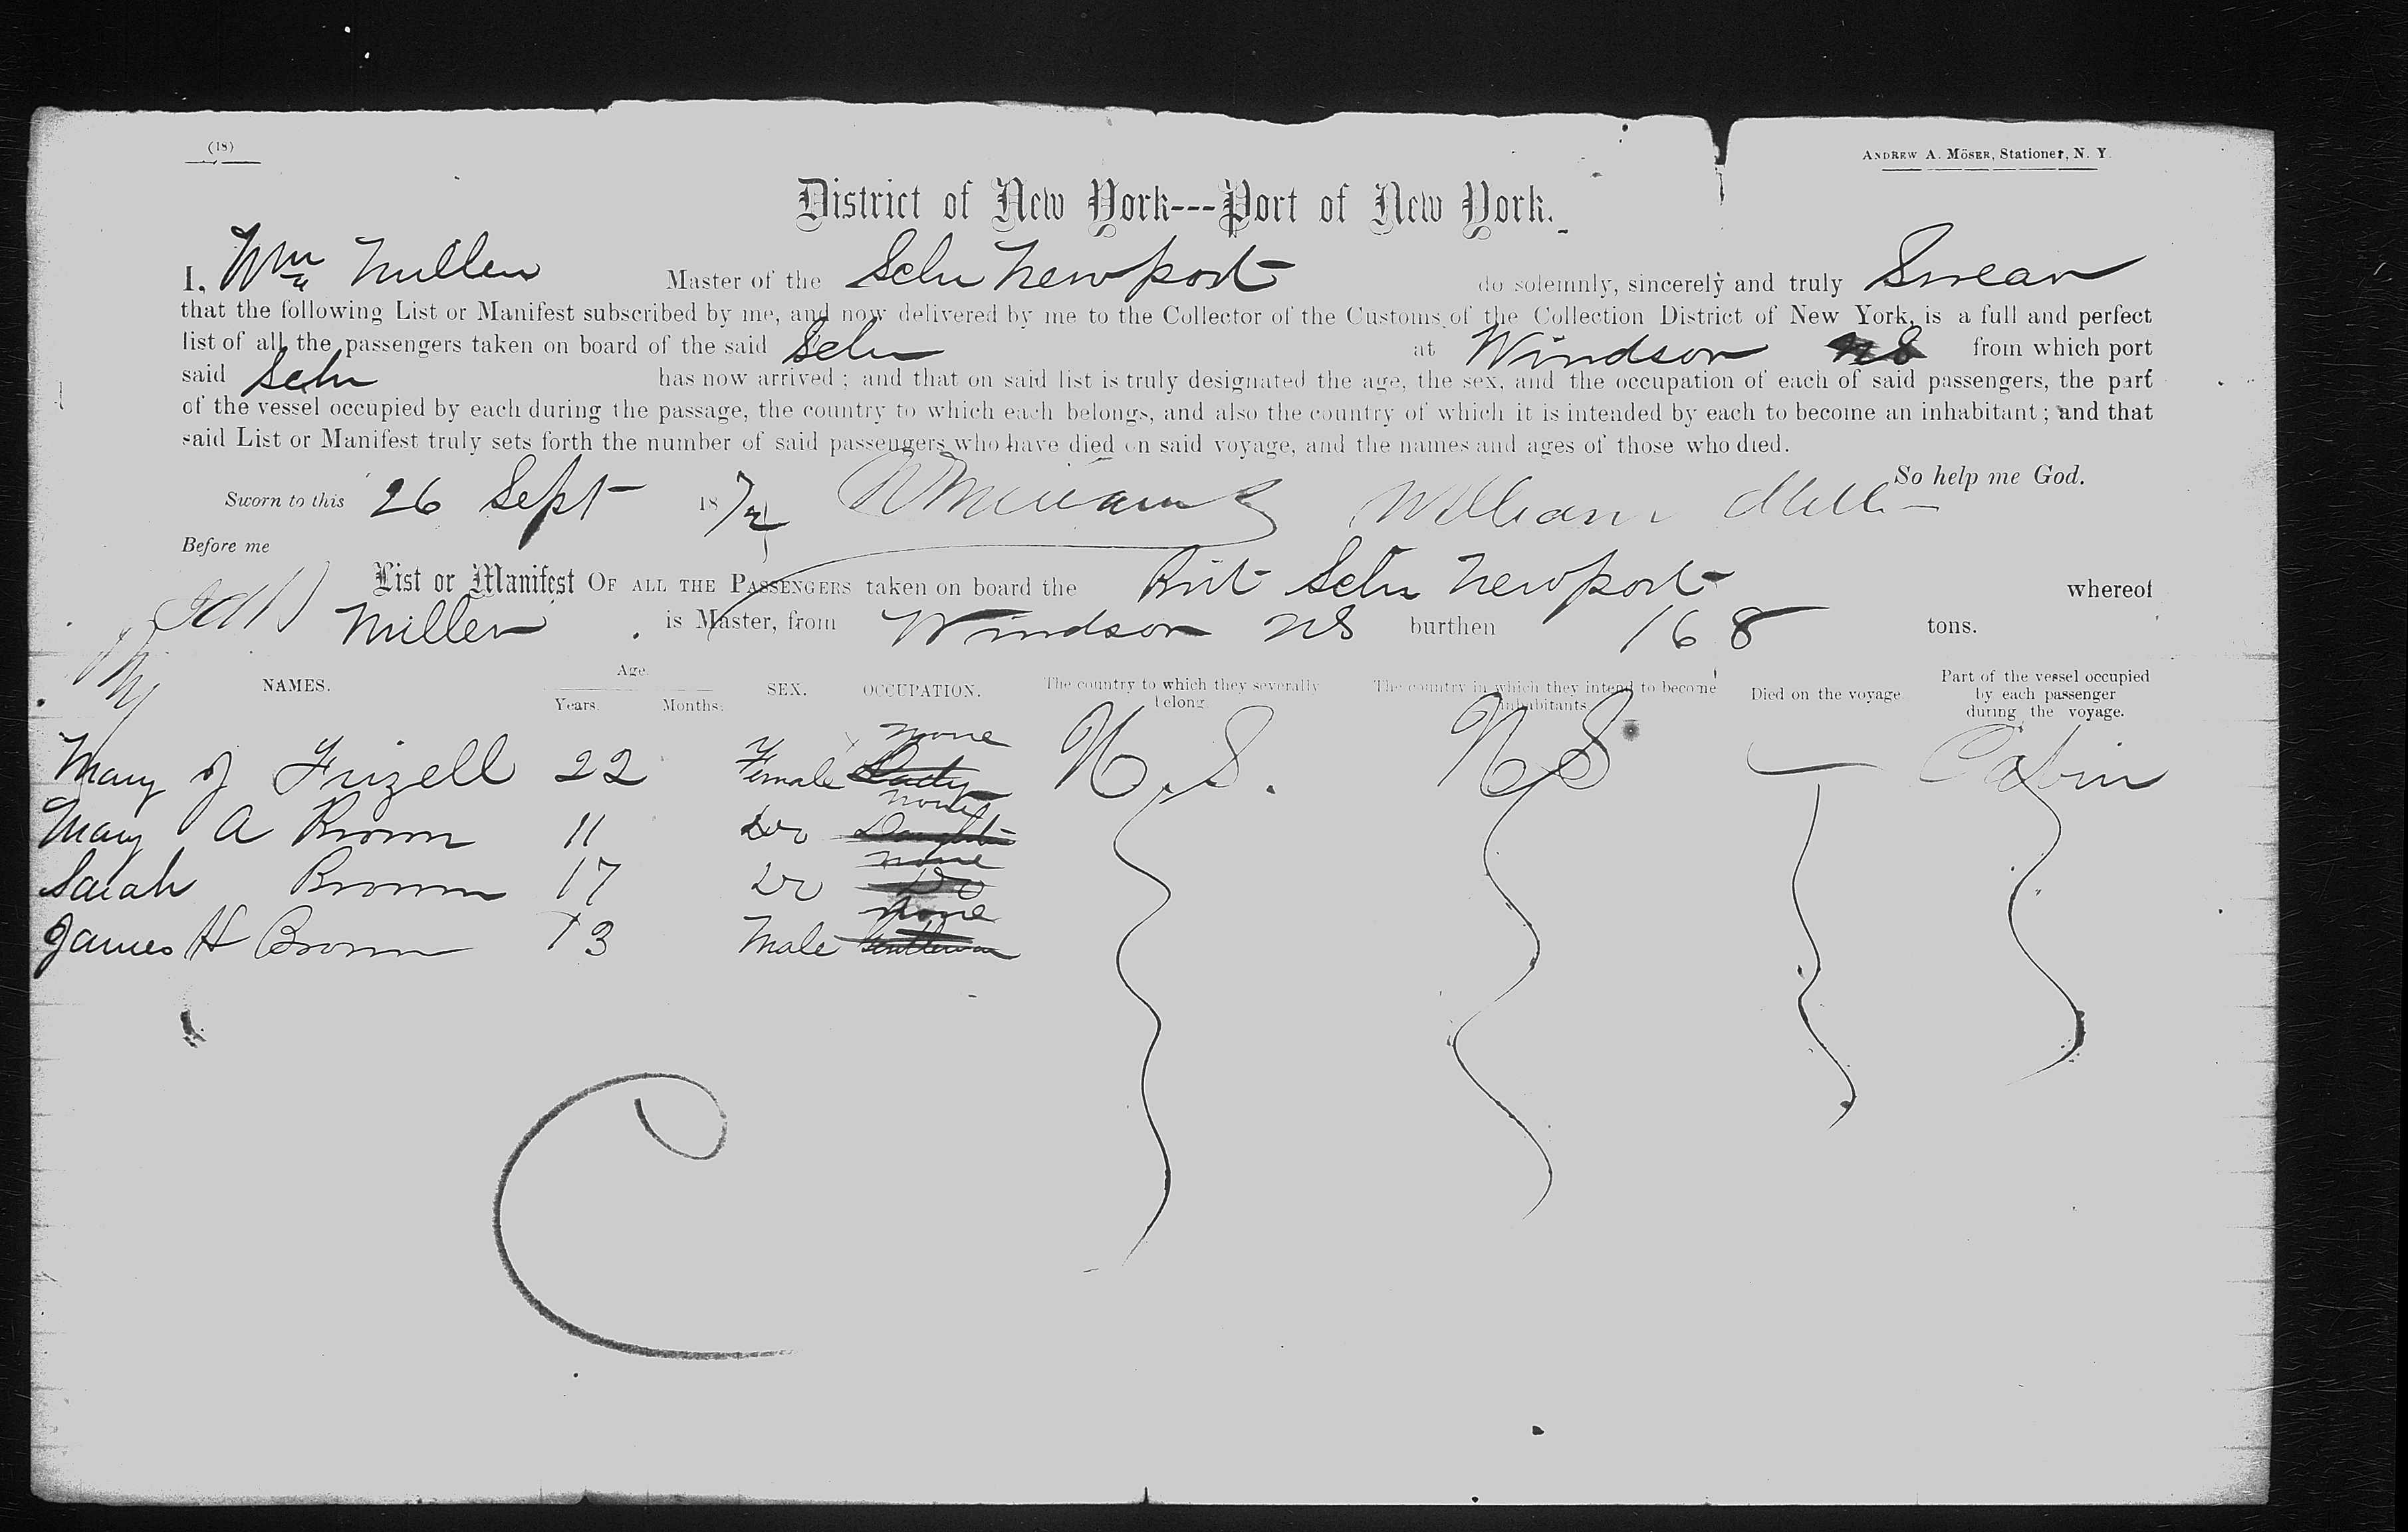 (18)
ANDREW A. MÖSER, Stationer, N. Y.
District of New York---Port of New York.
I, Wm Miller Master of the Schr Newport do solemnly, sincerely and truly Swear
that the following List or Manifest subscribed by me, and now delivered by me to the Collector of the Customs of the Collection District of New York, is a full and perfect
list of all the passengers taken on board of the said Schr at Windsor NS from which port
said Schr has now arrived; and that on said list is truly designated the age, the sex, and the occupation of each of said passengers, the part
of the vessel occupied by each during the passage, the country to which each belongs, and also the country of which it is intended by each to become an inhabitant; and that
said List or Manifest truly sets forth the number of said passengers who have died on said voyage, and the names and ages of those who died.
So help me God.
Sworn to this 26 Sept 1872 William Miller
Before me
List or Manifest OF ALL THE PASSENGERS taken on board the Brit Schr Newport whereof
Miller is Master, from Windsor NS burthen 168 tons.
NAMES. Age. Years. Months. SEX. OCCUPATION. The country to which they severally belong. The country in which they intend to become inhabitants. Died on the voyage. Part of the vessel occupied by each passenger during the voyage.
none
Mary J Frizell 22 Female Lady N.S. NS Cabin
none
Mary A Brown 11 do Daughter
none
Sarah Brown 17 do Do
none
James H Brown 13 Male Gentleman
C